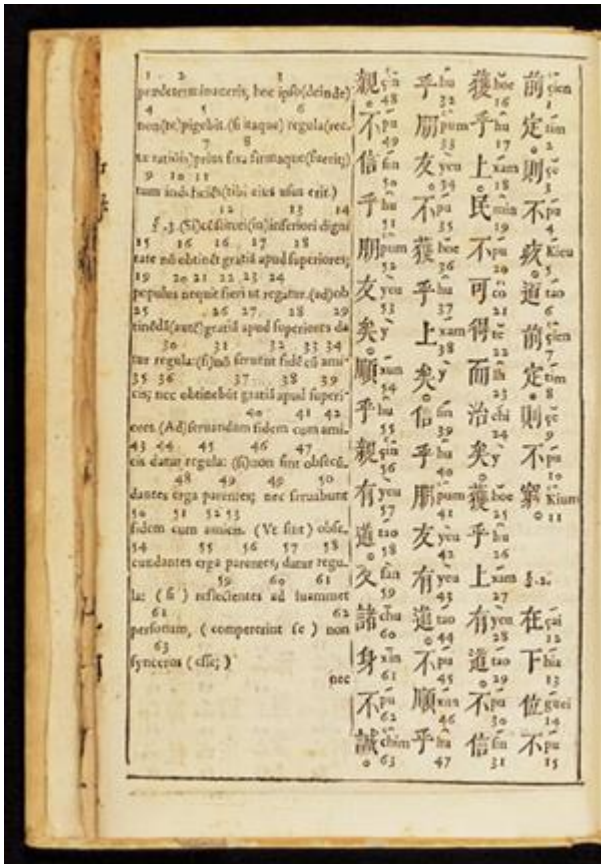 1 2 3
prædeterminaveris, hoc ipso (deinde)
4 5 6
non (te) pigebit. (si itaque) regula (rec-
7 8
tæ rationis) prius fixa firmaque (fuerit;)
9 10 11
tum indeficiẽs (tibi eius usus erit.)
12 13 14
§.3. (Si) cõstituti (in) inferiori digni
15 16 16 17 18
tate nõ obtinẽt gratiã apud superiores;
19 20 21 22 23 24
populus nequit fieri ut regatur. (ad) ob
25 26 27 28 29
tinẽdã (autẽ) gratiã apud superiores da
30 31 32 33 34
tur regula: (si) nõ servent fidẽ cũ ami-
35 36 37 38 39
cis; nec obtinebũt gratiã apud superi-
40 41 42
ores. (Ad) servandam fidem cum ami-
43 44 45 46 47
cis datur regula: (si) non sint obsecũ-
48 49 49 50
dantes erga parentes; nec servabunt
50 51 52 53
fidem cum amicis. (Ut sint) obse-
54 55 56 57 58
cundantes erga parentes, datur regu-
59 60 61
la: (si) reflectentes ad suammet
61 62
personam, (compererint se) non
63
synceros (esse;)
nec
前定。則不疚。道前定。則不窮。 §.2. 在下位不
çien 1 tim 2 çě 3 pu 4 Kieu 5 tao 6 çien 7 tim 8 çě 9 pu 10 Kium 11 çai 12 hia 13 guei 14 pu 15
獲乎上。民不可得而治矣。獲乎上有道。不信
hoe 16 hu 17 xam 18 min 19 pu 20 co 21 te 22 ih 23 chi 24 y hoe 25 hu 26 xam 27 yeu 28 tao 29 pu 30 sin 31
乎朋友。不獲乎上矣。信乎朋友有道。不順乎
hu 32 pum 33 yeu 34 pu 35 hoe 36 hu 37 xam 38 y sin 39 hu 40 pum 41 yeu 42 yeu 43 tao 44 pu 45 xun 46 hu 47
親。不信乎朋友矣。順乎親有道。反諸身不誠。
çin 48 pu 49 sin 50 hu 51 pum 52 yeu 53 y xun 54 hu 55 çin 56 yeu 57 tao 58 fan 59 chu 60 xin 61 pu 62 chim 63